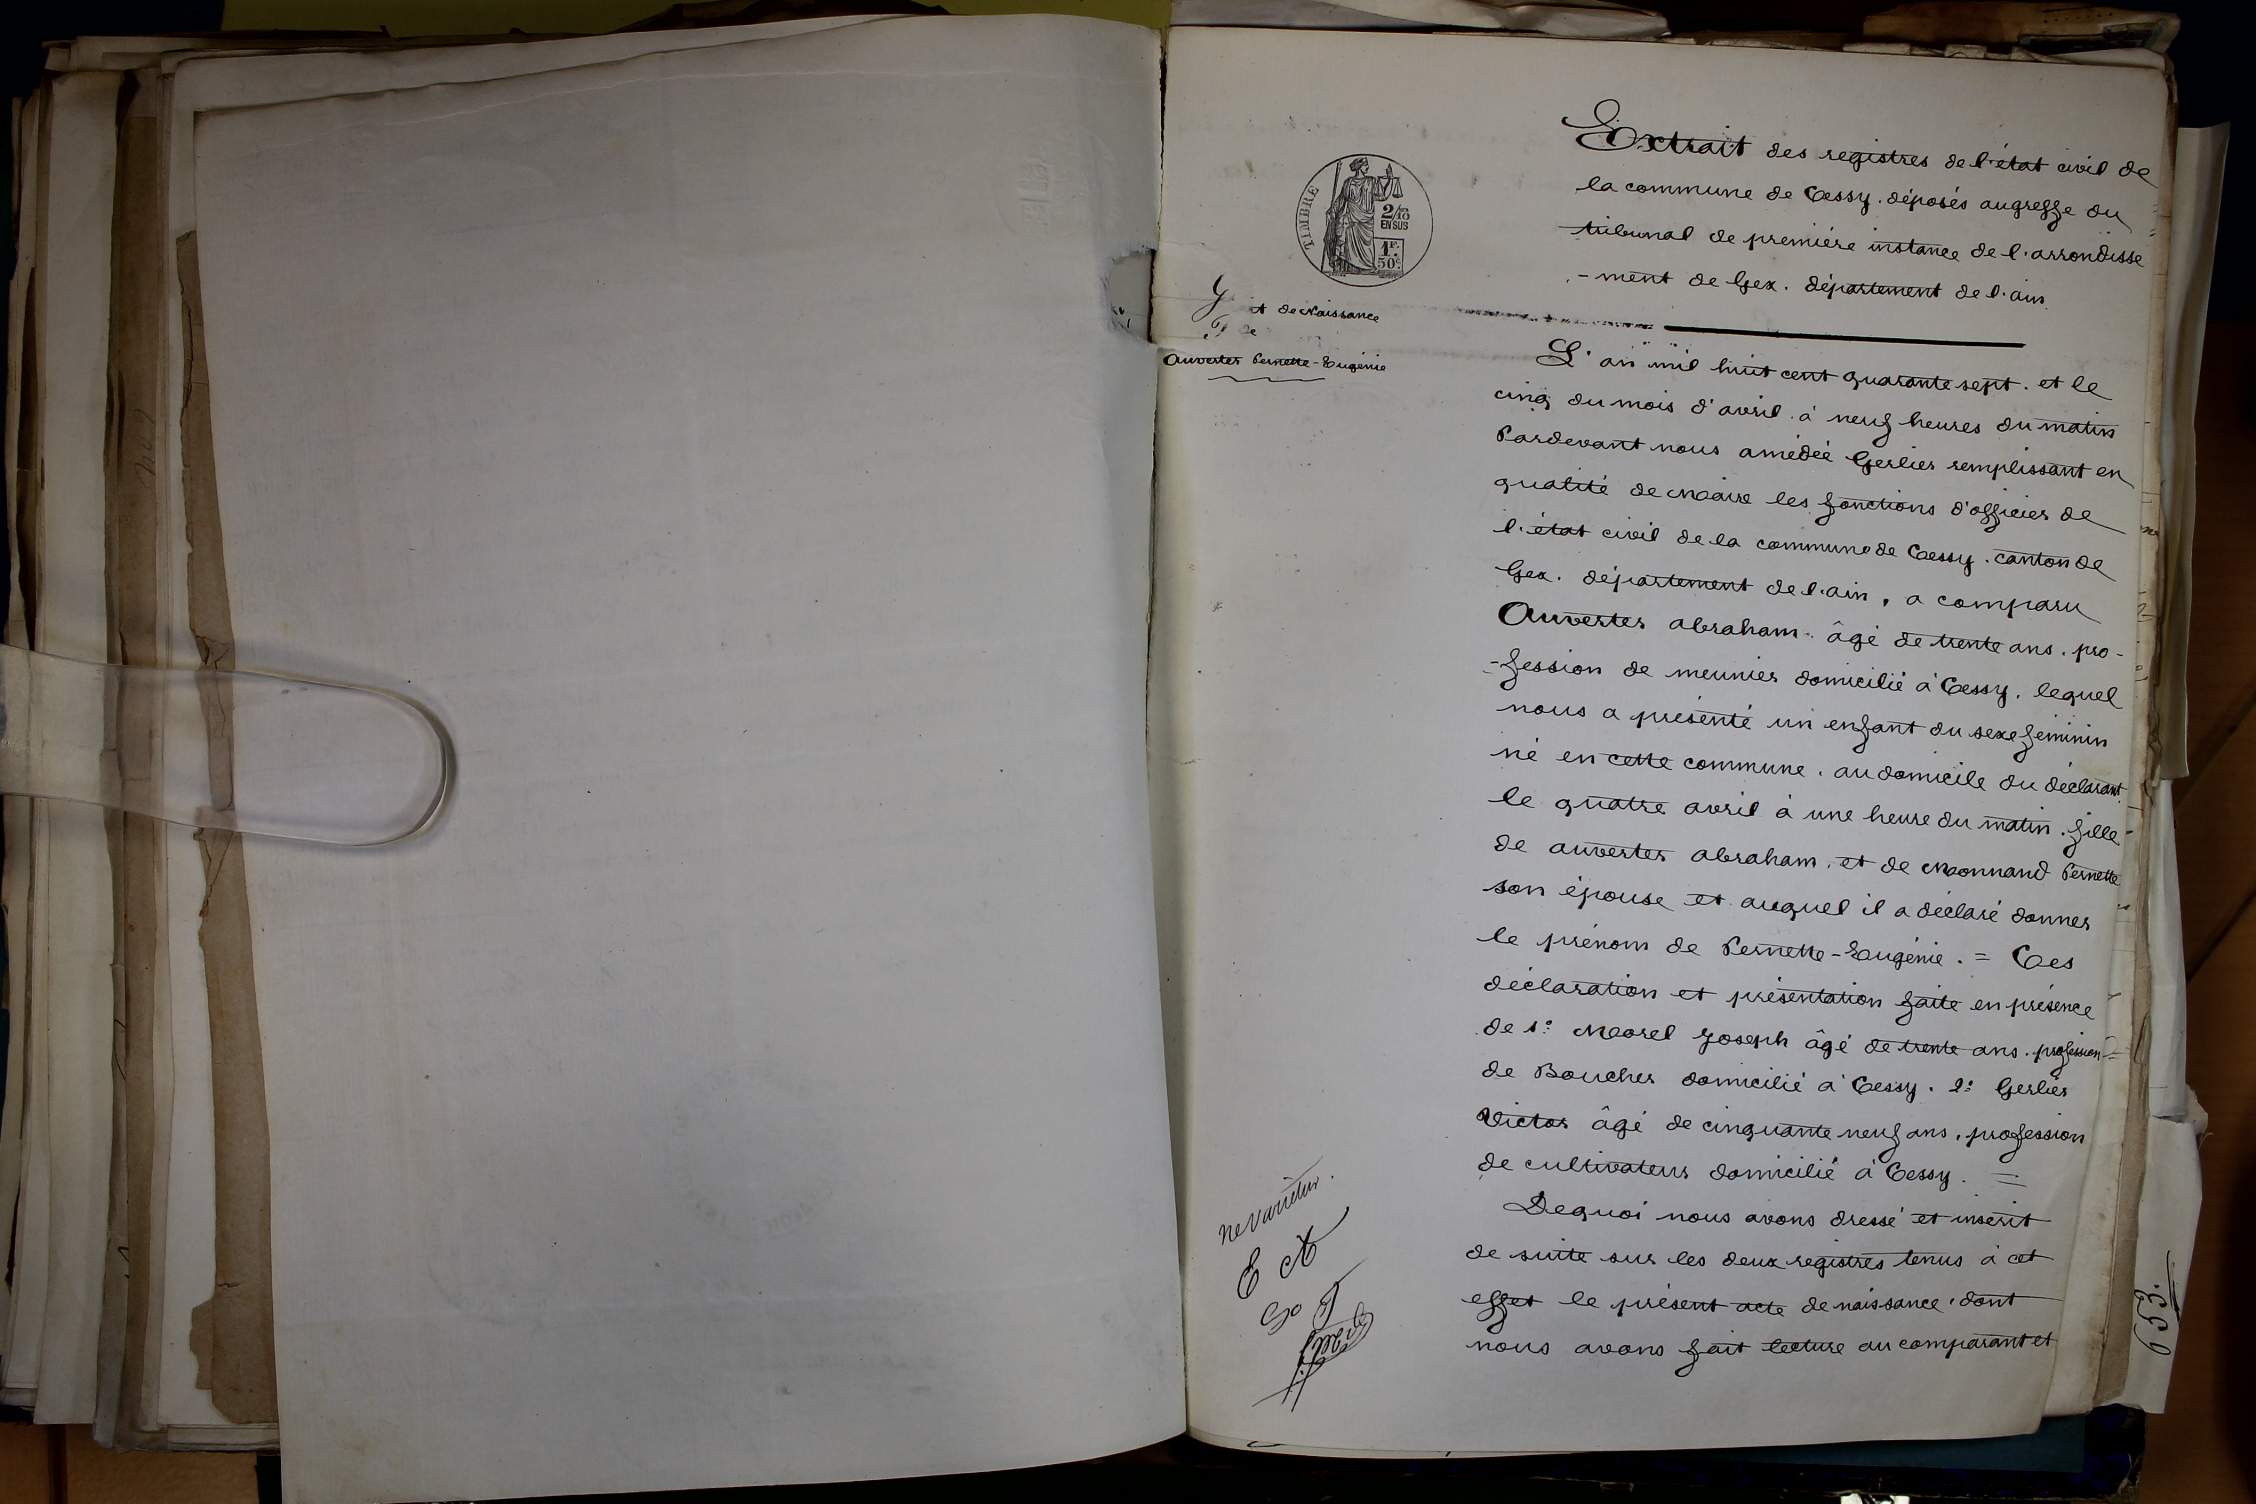 Extrait des registres de l'état civil de
la commune de Cessy. déposés au greffe du
tribunal de première instance de l'arrondisse
-ment de Gex. département de l'ain
TIMBRE
2/10
EN SUS
1F.
50c.
de Naissance
de
Auverter Pernette-Eugénie
L'an mil huit cent quarante sept. et le
cinq du mois d'avril. à neuf heures du matin
Pardevant nous amédée Gerlier remplissant en
qualité de Maire les fonctions d'officier de
l'état civil de la commune de Cessy. canton de
Gex. département de l'ain, a comparu
Auverter abraham. âgé de trente ans. pro-
-fession de meunier domicilié à Cessy. lequel
nous a présenté un enfant du sexe féminin
né en cette commune. au domicile du déclarant
le quatre avril à une heure du matin. fille
de auverter abraham. et de Monnand Pernette
son épouse et auquel il a déclaré donner
le prénom de Pernette-Eugénie. = Ces
déclaration et présentation faite en présence
de 1º Morel Joseph âgé de trente ans. profession
de Boucher domicilié à Cessy. 2º Gerlier
Victor âgé de cinquante neuf ans, profession
de cultivateur domicilié à Cessy. =
De quoi nous avons dressé et inscrit
de suite sur les deux registres tenus à cet
effet le présent acte de naissance. dont
nous avons fait lecture au comparant et
ne varietur.
E A
653.